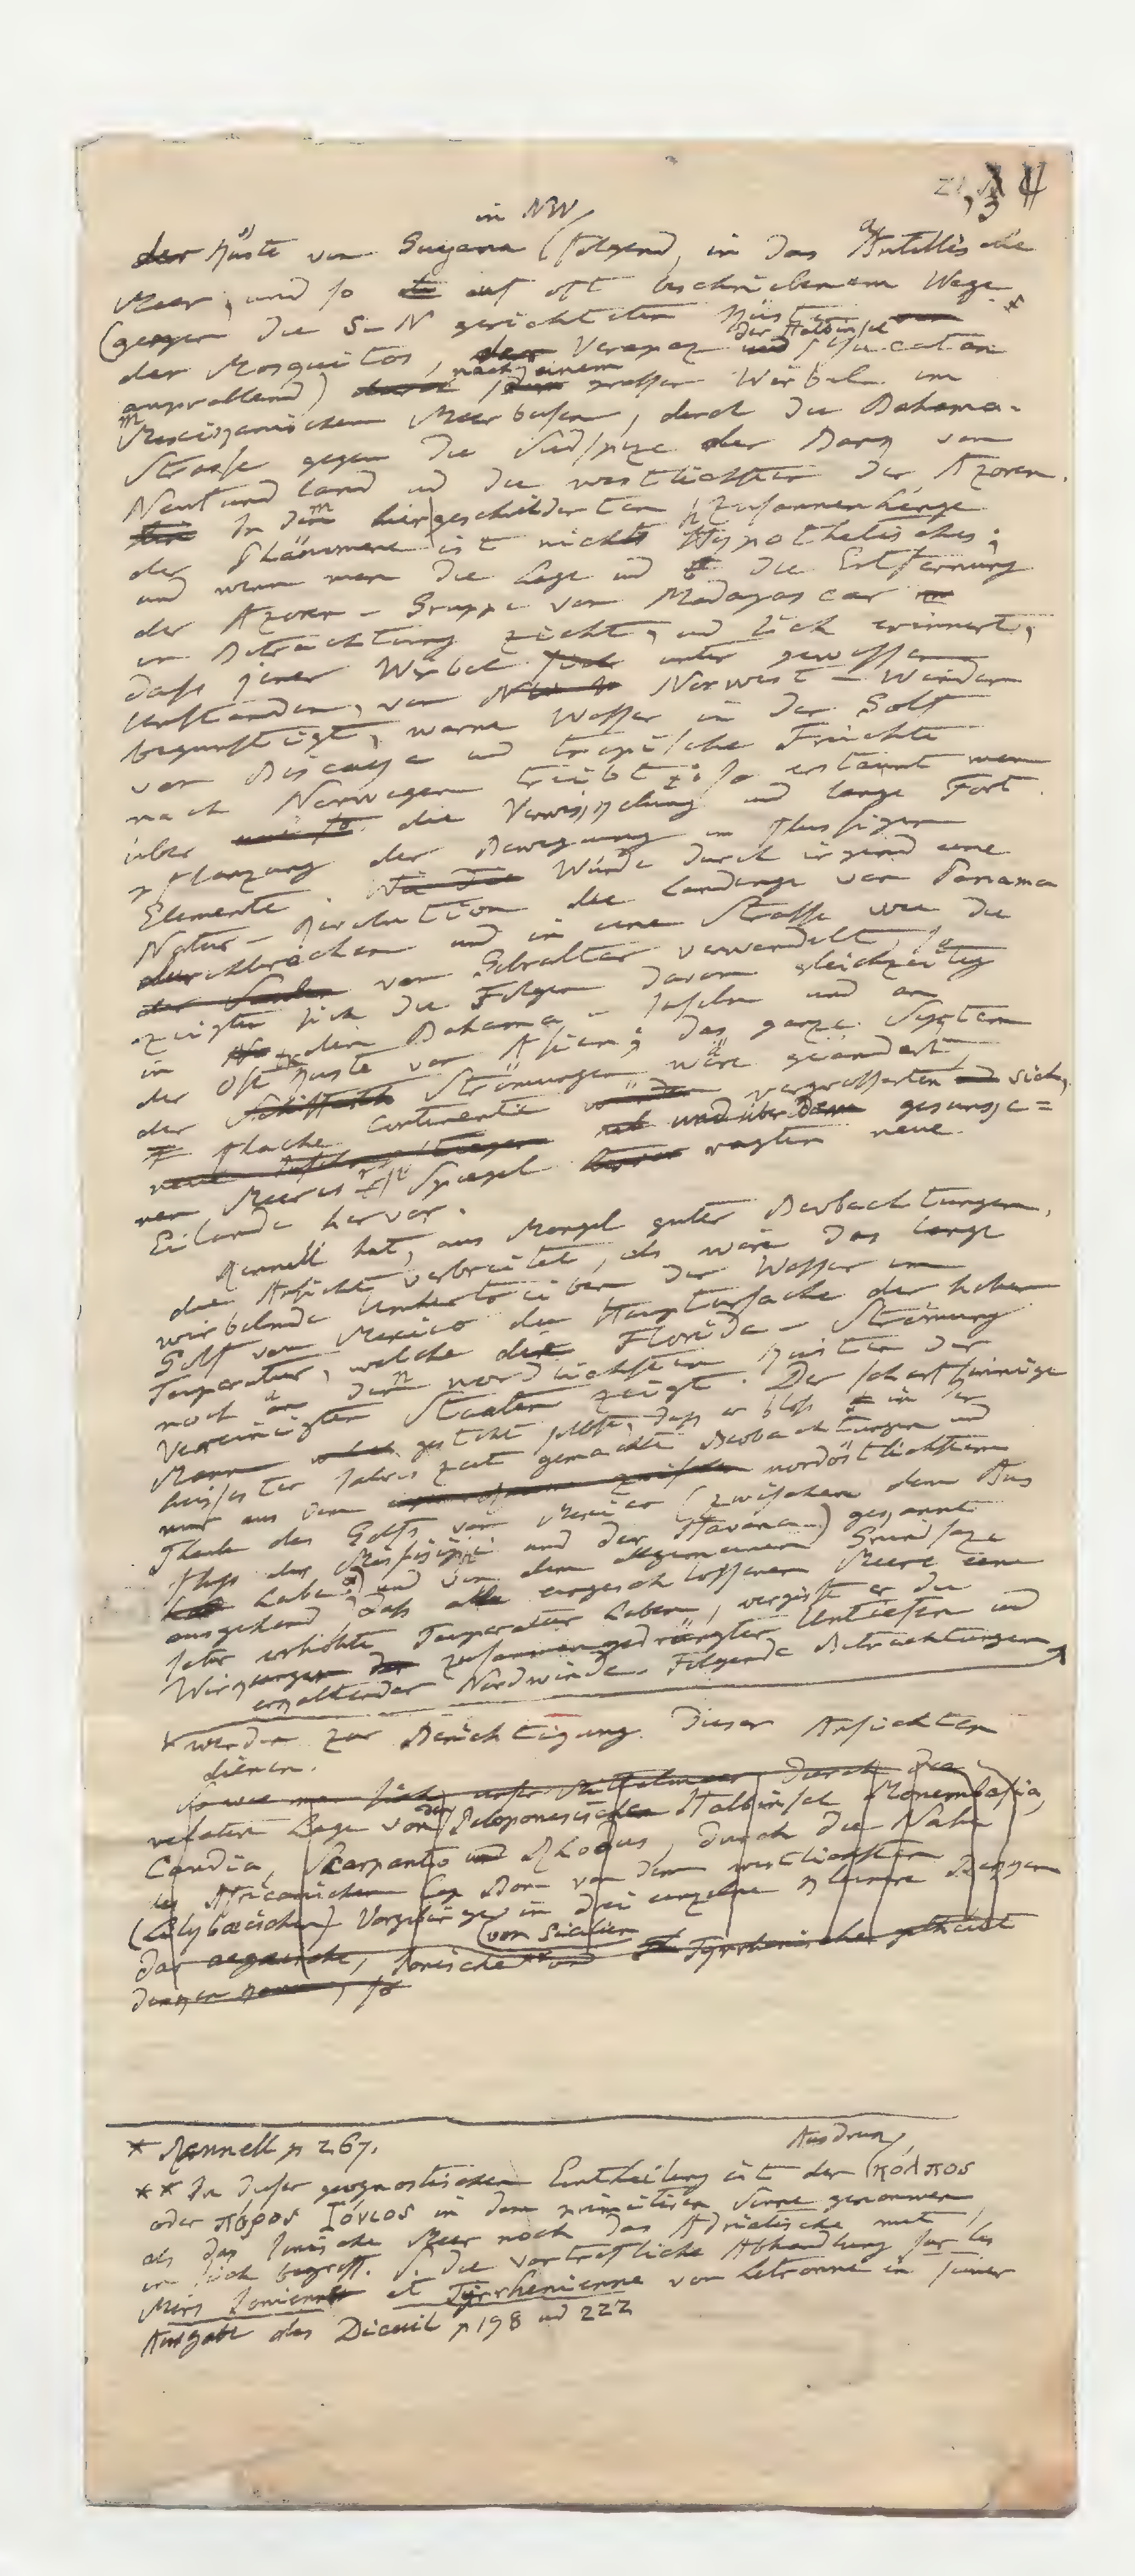 in NW
der Küste von Guyana folgend, in das Antillische
Meer, und so auf oft beschriebenem Wege
(gegen die S-N gerichteten Küsten
der Mosquitos, der Verapaz und der Halbinsel Yucatan
anprallend) nach einem grossen Wirbel im
Mexicanischen Meerbusen, durch die Bahama-
Strasse gegen die Südspize der Bank von
Neufundland und die westlichsten der Azoren.
In dem hier geschilderten Zusammenhänge
der Phänomene ist nichts Hypothetisches;
und wenn man die Lage und die Entfernung
der Azoren-Gruppe von Madagascar
in Betrachtung zieht, und sich erinnert,
dass jener Wirbel unter gewissen
Umständen, von Norwest-Winden
begünstigt, warme Wasser in den Golf
von Biscaya und tropische Früchte
nach Norwegen treibt; so erstaunt man
über die Verkettung und lange Fort-
pflanzung der Bewegung im flüssigen
Elemente. Würde durch irgend eine
Natur-Revolution die Landenge von Panama
durchbrochen und in eine Strasse wie die
von Gibraltar verwandelt, so
zeigten sich die Folgen davon gleichzeitig
in den Bahama-Inseln und an
der Ost Küste von Asien; das ganze System
der Strömungen wäre geändert,
flache Continente vergrösserten sich,
und über dem gesunke=
nen Meeres Spiegel ragten neue
Eilande hervor.
Rennell hat, aus Mangel guter Beobachtungen,
die Ansicht verbreitet, als wäre das lange
wirbelnde Umhertreiben der Wasser im
Golf von Mexico die Hauptursache der hohen
Temperatur, welche die Florida-Strömung
noch an den nordlichsten Küsten der
Vereinigten Staaten zeigt. Der scharfsinnige
Mann gesteht selbst, dass er bloss in der
heissesten Jahreszeit gemachte Beobachtungen und
nur aus dem nordöstlichsten
Theile des Golfs von Mexico (zwischen dem Aus
fluss des Missisippi und der Havana) gekannt
habe* und von dem allgemeinen Grundsaze
ausgehend, dass alle eingeschlossenen Meere eine
sehr erhöhte Temperatur haben, vergisst er die
Wirkungen zusammengedrängter Untiefen und
erkaltender Nordwinde. Folgende Betrachtungen
werden zur Berichtigung dieser Ansichten
dienen.
So wie man sich unser Mittelmeer durch die
relative Lage von der Peloponesischen Halbinsel Monembasia,
Candia, Skarpanto und Rhodus, durch die Nähe
des Africanischen Cap Bon von dem westlichsten
(Lilybaeischen) Vorgebirge in drei einzelne kleinere Becken
von Sicilien
das aegaeische, Ionische** und Tyrrhenische getheilt
denken kann, so
* Rennell p 267.
Ausdruk
** In dieser geognostischen Eintheilung ist der κόλπος
oder πόρος Ἰόνιος in dem primitiven Sinne genommen,
als das Ionische Meer noch das Adriatische mit
in sich begriff. S. die vortrefliche Abhandlung sur les
Mers Ionienne et Tyrrhenienne von Letronne in seiner
Ausgabe des Dicuil p 198 und 222